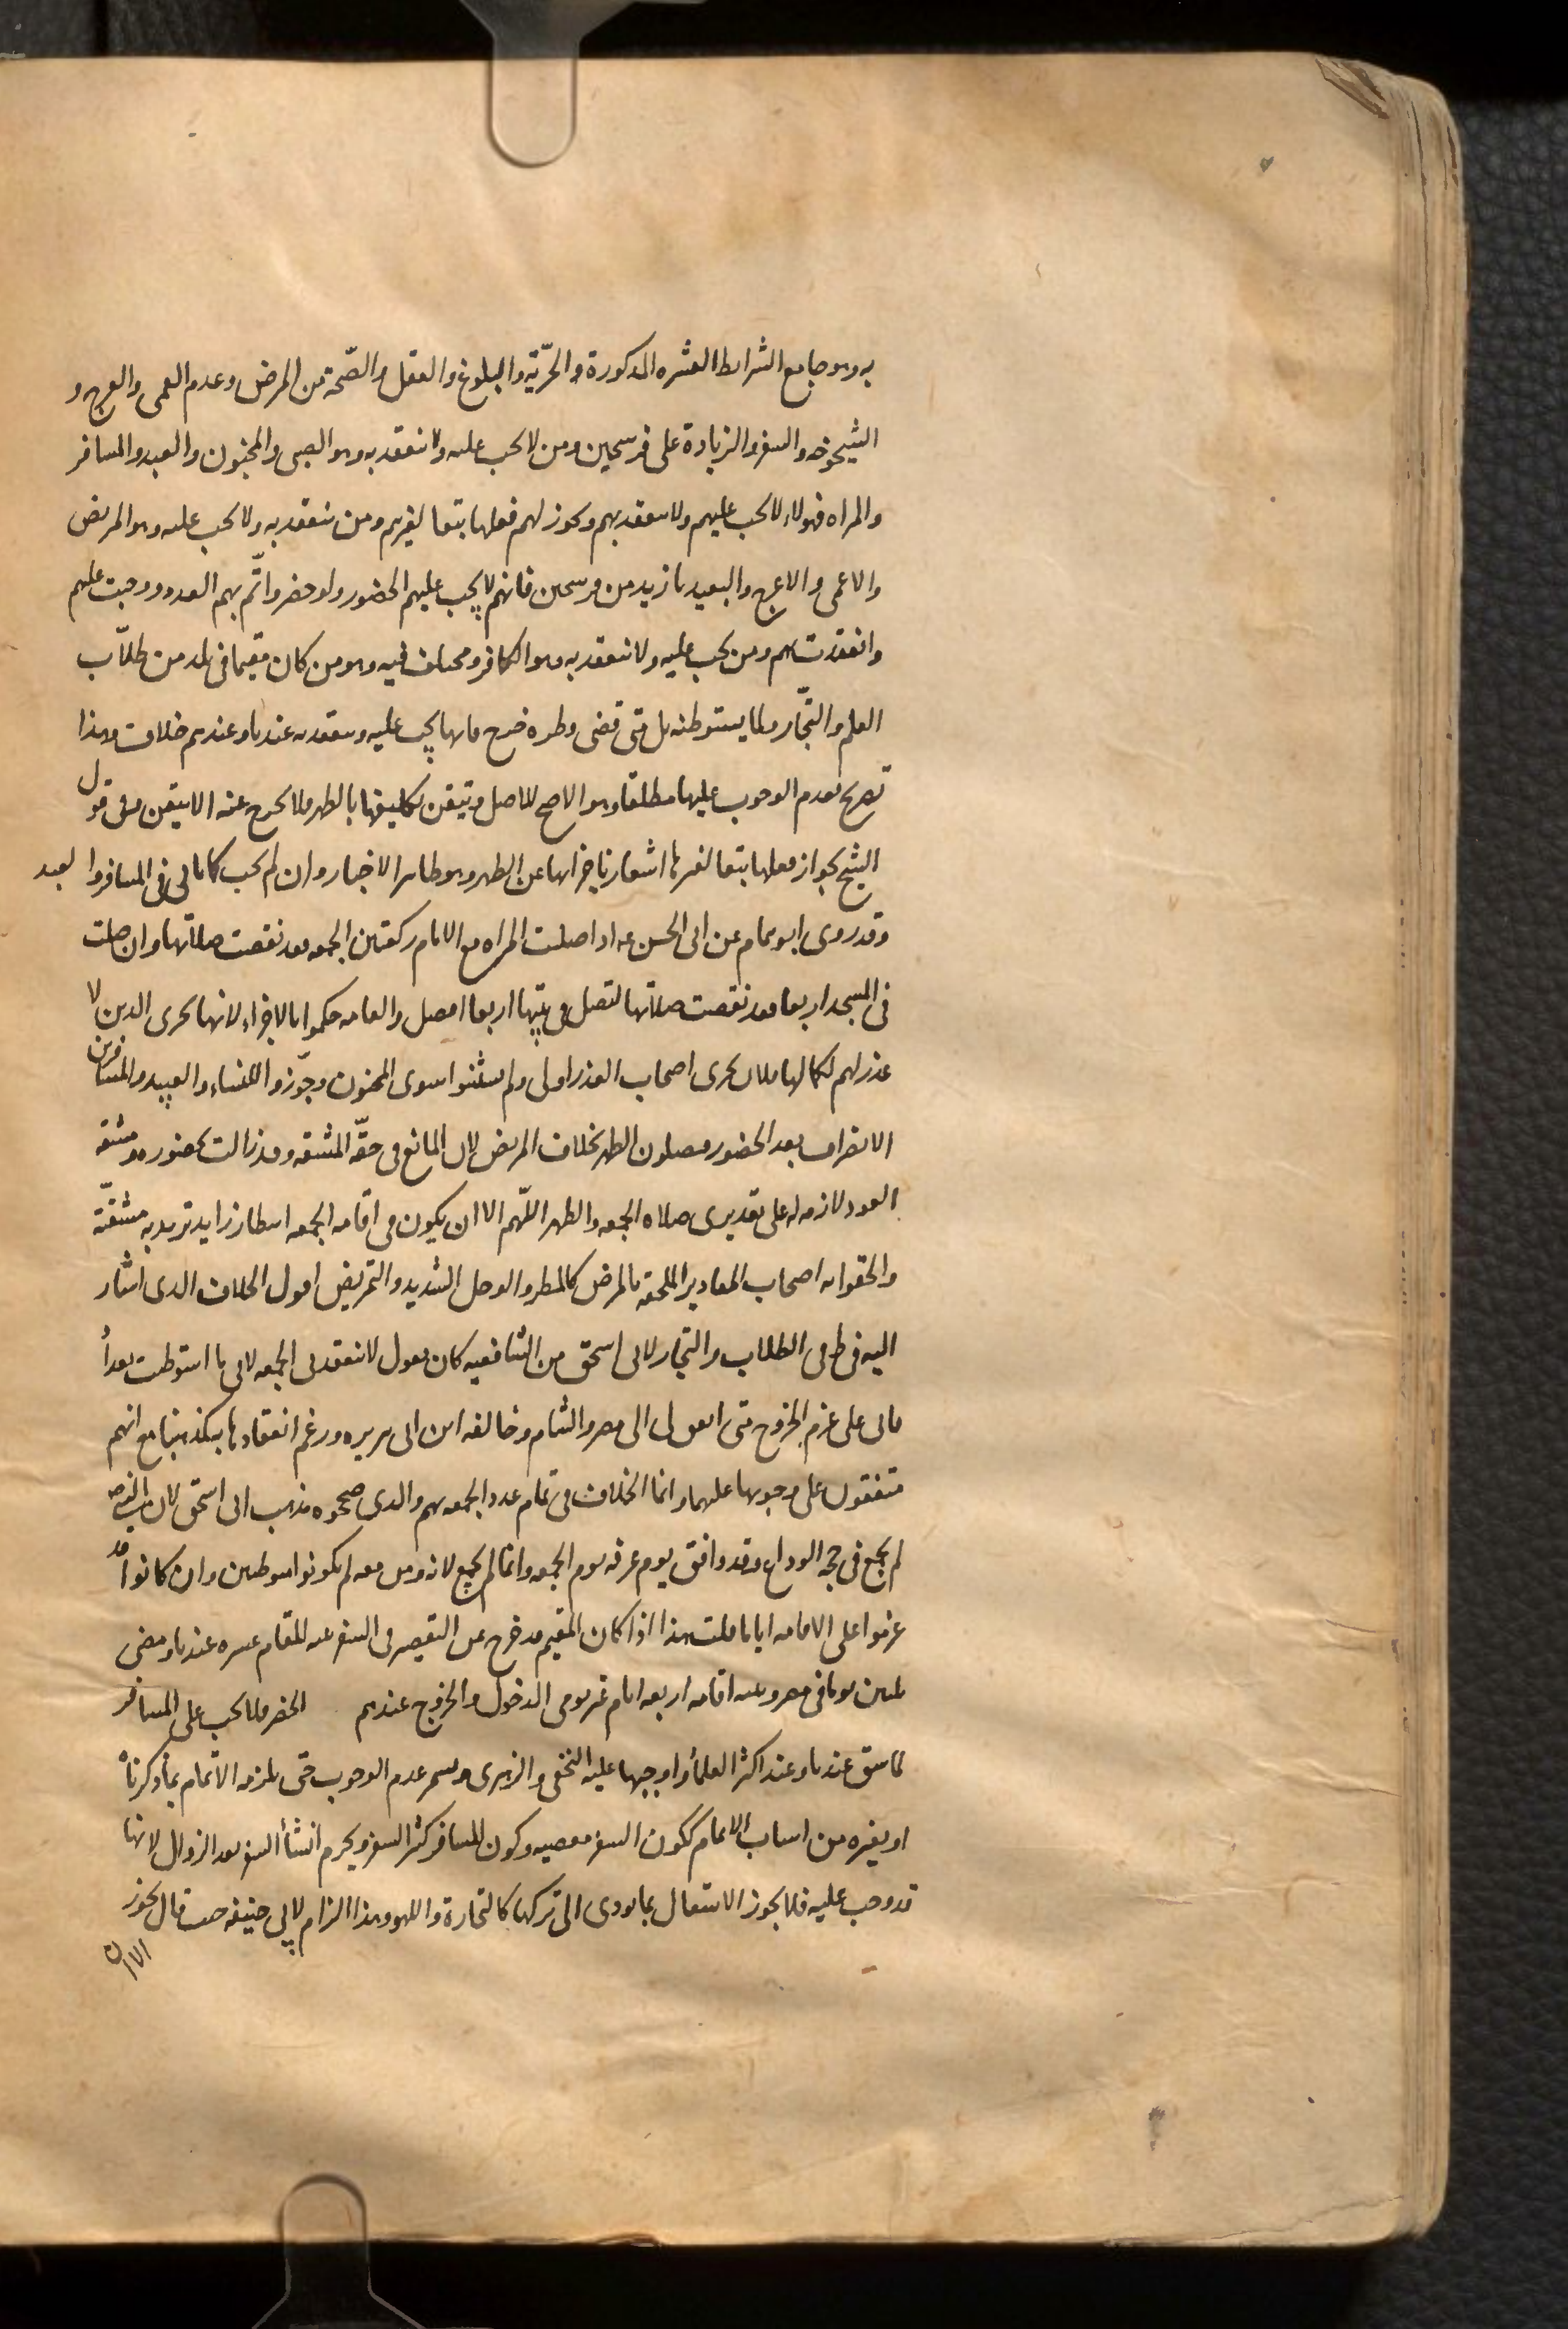 به وهو جامع الشرايط العشره المذكورة والحرّية والبلوغ والعقل والصّحة من المرض وعدم العمى والعرج و
الشيخوخه والسفر والزيادة على فرسخين ومن لا يجب عليه ولا تنعقد به وهو الصبى والمجنون والعبد والمسافر
والمراه فهولاء لا يجب عليهم ولا ينعقد بهم ويجوز لهم فعلها تبعا لغيرهم ومن ينعقد به ولا يجب عليه وهو المريض
والاعمى والاعرج والبعيد بازيد من فرسخين فانهم لا يجب عليهم الحضور ولو حضروا تّم بهم العدد ووجبت عليهم
وانعقدت بهم ومن يجب عليه ولا تنعقد به وهو الكافر ومختلف فيه وهو من كان مقيما فى بلد من طلاّب
العلم والتجّار ولما يستوطنه بل متى قضى وطره خرج فانها يجب عليه وينعقد به عندنا وعندهم خلاف وهذا
تصريح بعدم الوجوب عليها مطلقا وهو الاصح للاصل وتيقن تكليفها بالظهر فلا يخرج عنه الا بيقين وفى قول
الشيخ بجواز فعلها تبعا لغيرها اشعار باجزائها عن الظهر وهو ظاهر الاخبار وان لم يجب كما ياتى فى المسافر والعبد
وقد روى ابو همام عن ابى الحسن عه اذا صلت المراه مع الامام ركعتين الجمعه فقد نقصت صلاتها وان صلت
فى المسجد اربعا فقد نقصت صلاتها لتصل فى بيتها اربعا افضل والعامه حكموا بالاجزاء لانها تجزى الذين لا
عذر لهم لكمالها فلان تجزى اصحاب العذر اولى ولم يستثنوا سوى المجنون وجوّزوا للنساء والعبيد والمسافرين
الانصراف بعد الحضور ويصلون الظهر بخلاف المريض لان المانع فى حقّه المشقه وقد زالت بحضوره ومشقه
العود لازمه له على تقديرى صلاه الجمعه والظهر اللّهم الا ان يكون فى اقامه الجمعه انتظار زايد تزيد به مشقّة
والحقوا به اصحاب المعاذير الملحقه بالمرض كالمطر والوحل الشديد والتمريض اقول الخلاف الذى اشار
اليه فى ط فى الطلاب والتجار لابى اسحق من الشافعيه كان يقول لا تنعقد بى الجمعه لانى ما استوطنت بغداد
فانى على عزم الخروج متى الى مصر والشام وخالفه ابن ابى هريره وزعم انعقادها وبه كذهبنا مع انهم
متفقون على وجوبها عليهما وانما الخلاف فى تمام عدد الجمعه بهم والذى صححوه مذهب ابى اسحق لان النبى ص
لم يجمع فى حجه الوداع وقد وافق يوم عرفه يوم الجمعه وانما لم يجمع لانه ومن معه لم يكونوا متوطنين وان كانوا قد
عزموا على الاقامه اياما قلت هذا اذا كان المقيم قد خرج عن التقصير فى السفر عند المقام عشره عندنا ومضى
ثلثين يوما فى مصر ونيه اقامه اربعه ايام غير يومى الدخول والخروج عندهم الحضر فلا يجب على المسافر
لما سبق عندنا وعند اكثر العلماء واوجبها عليه النخعى والزهرى ويستمر عدم الوجوب حتى يلزمه الاتمام بما ذكرناه
او بغيره من اسباب الاتمام ككون السفر معصيه وكون المسافر كثير السفر ويحرم انشاء السفر بعد الزوال لانها
قد وجب عليه فلا يجوز الاشتغال بما يودى الى تركها كالتجارة واللهو وهذا الزام لابى حنيفه حيث قال يجوز